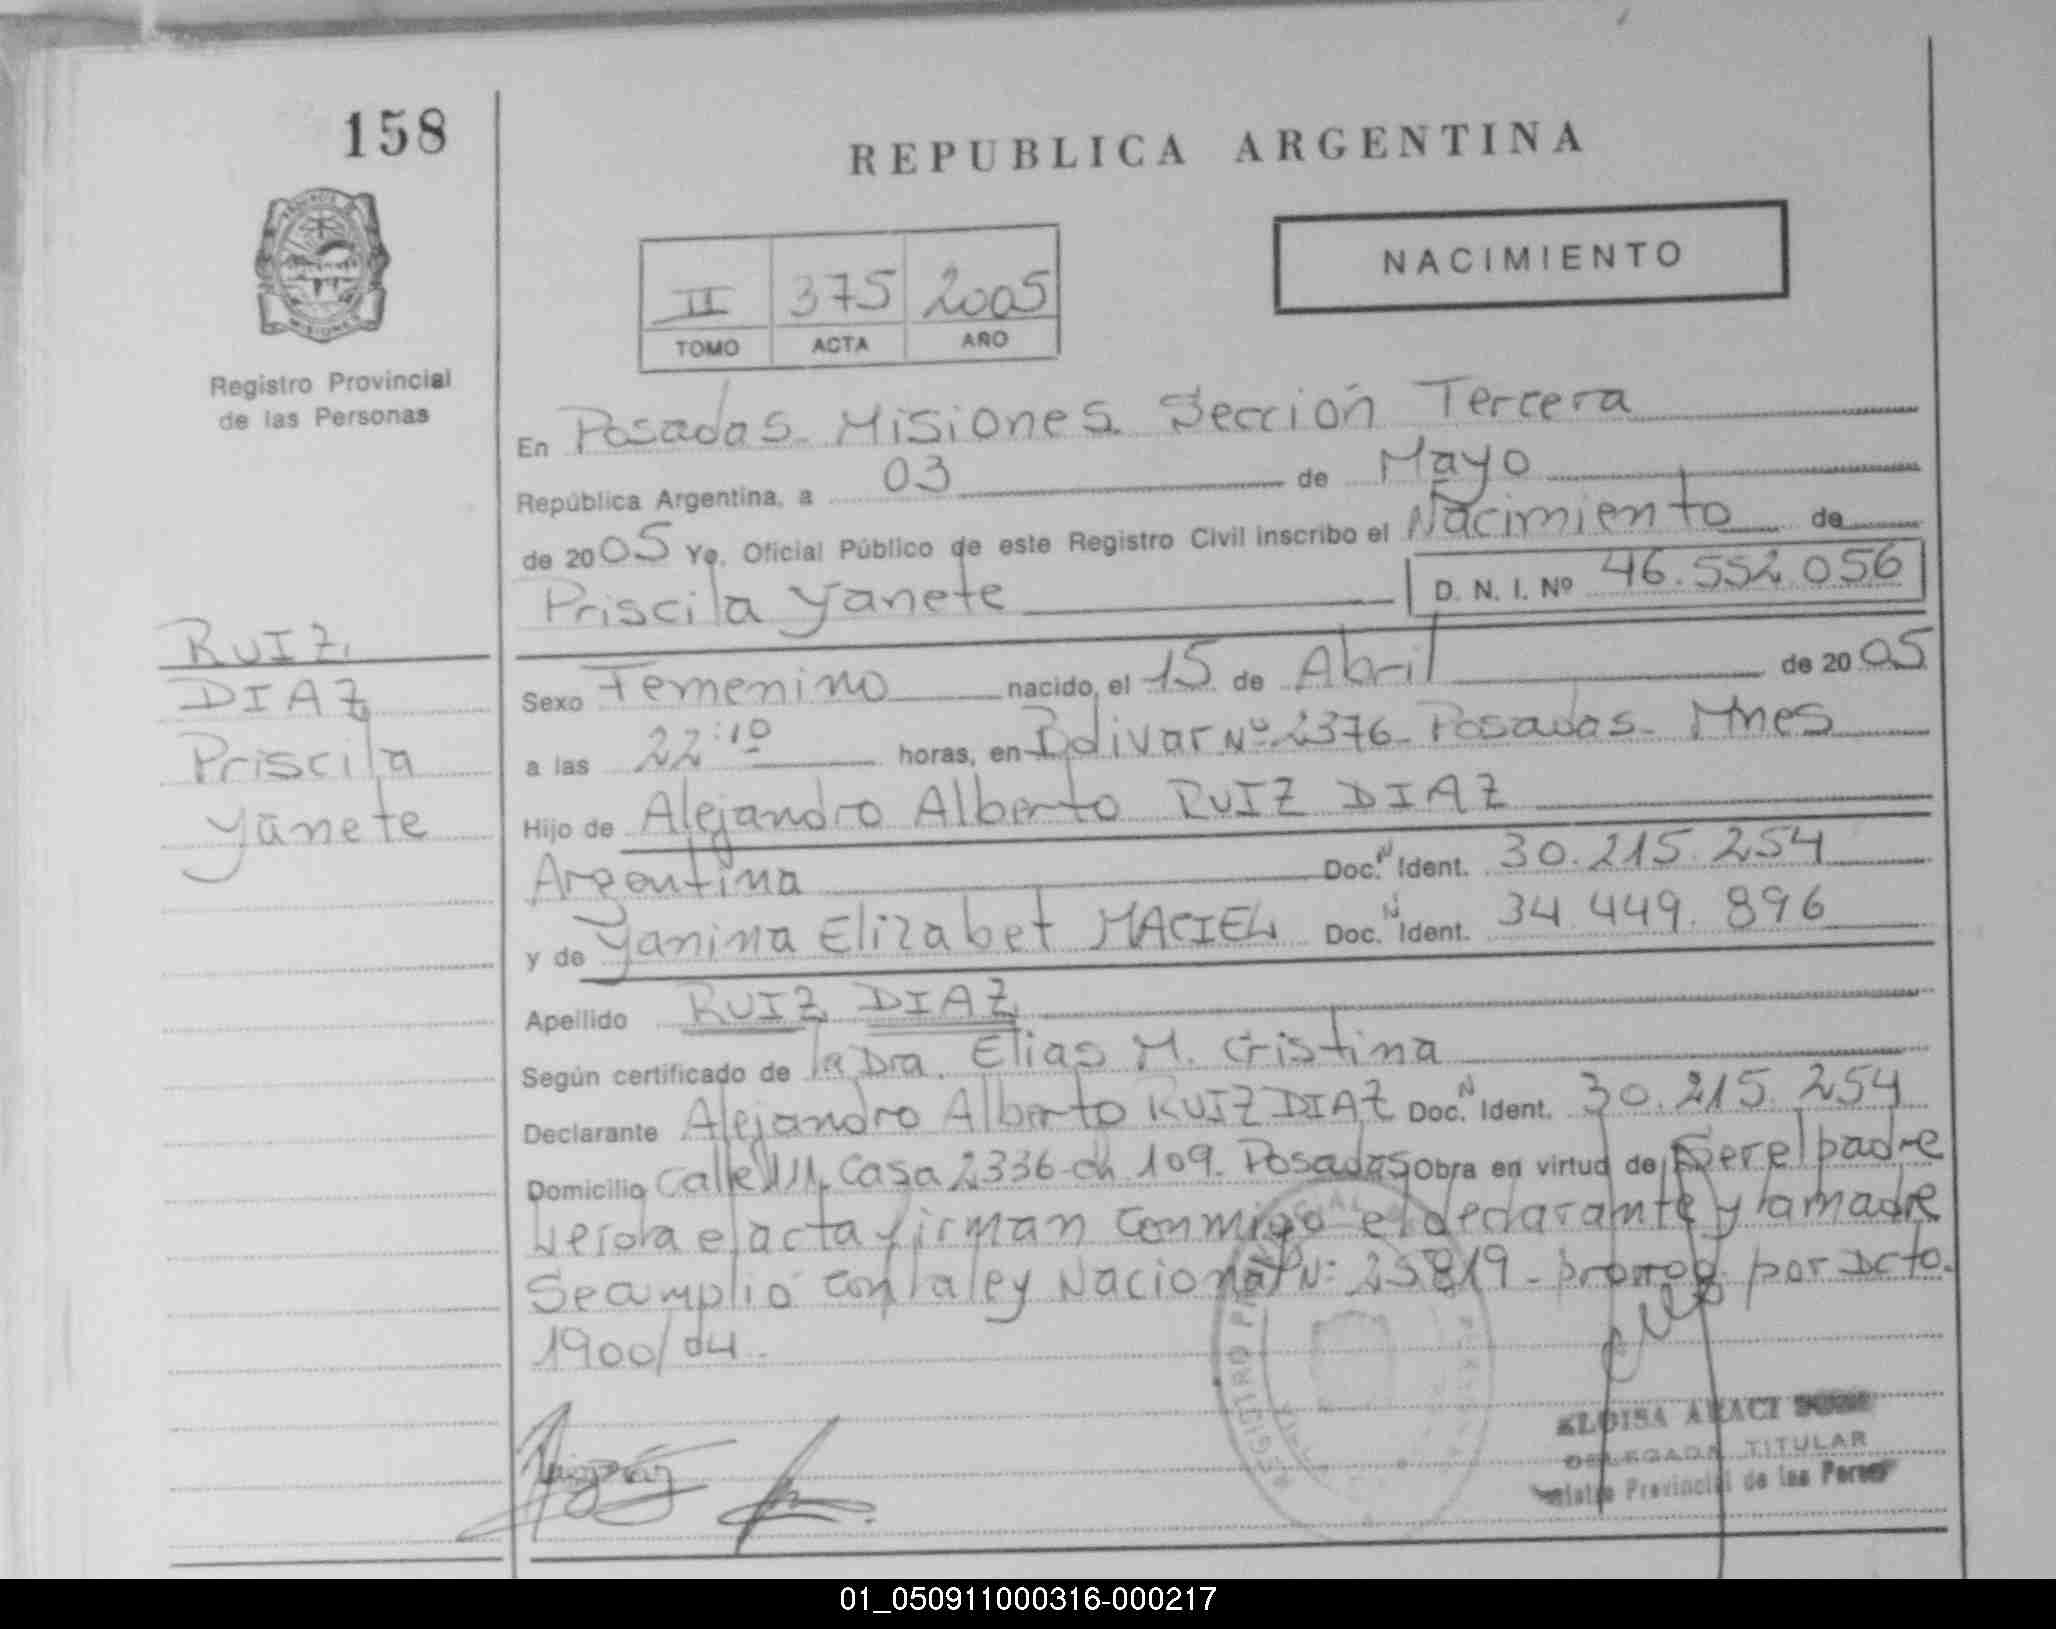 158
REPUBLICA ARGENTINA
NACIMIENTO
II 375 2005
TOMO ACTA AÑO
MISIONES
Registro Provincial
de las Personas
En Posadas - Misiones. Sección Tercera
República Argentina, a 03 de Mayo
de 2005 Yo, Oficial Público de este Registro Civil inscribo el Nacimiento de
Priscila Yanete D. N. I. Nº 46.552.056
RUIZ
DIAZ
Priscila
Yanete
Sexo Femenino nacido, el 15 de Abril de 2005
a las 22:10 horas, en Bolivar Nº 2376 - Posadas - Mnes
Hijo de Alejandro Alberto RUIZ DIAZ
Argentina Doc. N Ident. 30.215.254
y de Yanina Elizabet MACIEL Doc. N Ident. 34.449.896
Apellido RUIZ DIAZ
Según certificado de la Dra. Elias M. Cristina
Declarante Alejandro Alberto RUIZ DIAZ Doc. N Ident. 30.215.254
Domicilio Calle 111 Casa 2336 ch 109. Posadas Obra en virtud de Ser el padre
Leida el acta firman conmigo el declarante y la madre
Se amplió con la ley Nacional Nº 25819 - prorrog. por Dcto.
1900/04.
REGISTRO
DELEGADA TITULAR
Provincial de las
01_050911000316-000217